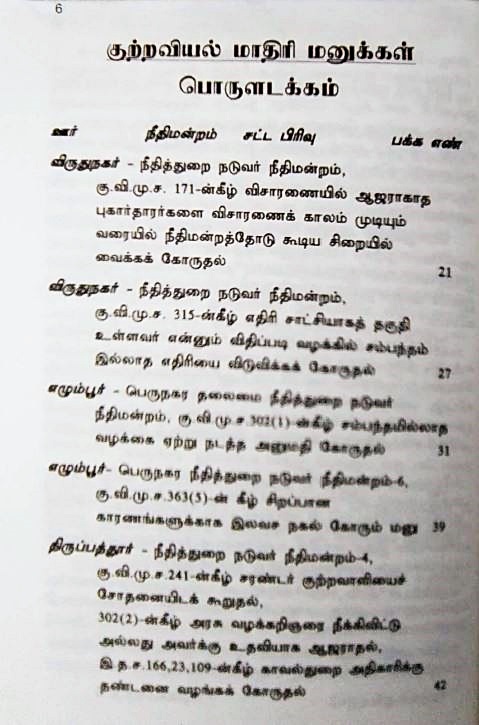 6
குற்றவியல் மாதிரி மனுக்கள்
பொருளடக்கம்
ஊர் நீதிமன்றம் சட்ட பிரிவு பக்க எண்
விருதுநகர் - நீதித்துறை நடுவர் நீதிமன்றம்,
கு.வி.மு.ச. 171-ன்கீழ் விசாரணையில் ஆஜராகாத
புகார்தாரர்களை விசாரணைக் காலம் முடியும்
வரையில் நீதிமன்றத்தோடு கூடிய சிறையில்
வைக்கக் கோருதல் 21
விருதுநகர் - நீதித்துறை நடுவர் நீதிமன்றம்,
கு.வி.மு.ச. 315-ன்கீழ் எதிரி சாட்சியாகத் தகுதி
உள்ளவர் என்னும் விதிப்படி வழக்கில் சம்பந்தம்
இல்லாத எதிரியை விடுவிக்கக் கோருதல் 27
எழும்பூர் - பெருநகர தலைமை நீதித்துறை நடுவர்
நீதிமன்றம், கு.வி.மு.ச.302(1)-ன்கீழ் சம்பந்தமில்லாத
வழக்கை ஏற்று நடத்த அனுமதி கோருதல் 31
எழும்பூர்- பெருநகர நீதித்துறை நடுவர் நீதிமன்றம்-6,
கு.வி.மு.ச.363(5)-ன் கீழ் சிறப்பான
காரணங்களுக்காக இலவச நகல் கோரும் மனு 39
திருப்பத்தூர் - நீதித்துறை நடுவர் நீதிமன்றம்-4,
கு.வி.மு.ச.241-ன்கீழ் சரண்டர் குற்றவாளியைச்
சோதனையிடக் கூறுதல்,
302(2)-ன்கீழ் அரசு வழக்கறிஞரை நீக்கிவிட்டு
அல்லது அவர்க்கு உதவியாக ஆஜராதல்,
இ.த.ச.166,23,109-ன்கீழ் காவல்துறை அதிகாரிக்கு
தண்டனை வழங்கக் கோருதல் 42